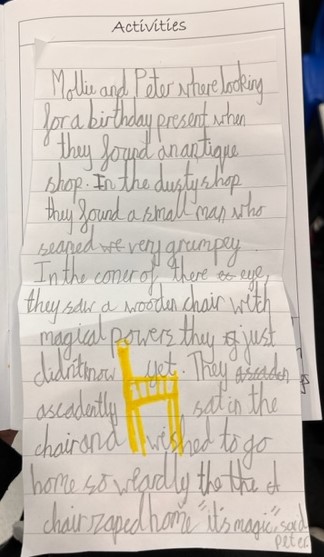 Activities
Mollie and Peter where looking
for a birthday present when
they found an antique
shop. In the dusty shop
they found a small man who
seaned we very grumpey.
In the coner of there eye
they saw a wooden chair with
magical powers they just
didntknow yet. They
ascadently sat in the
chair and wished to go
home so weardly the the
chair zaped home "it's magic," said
peter